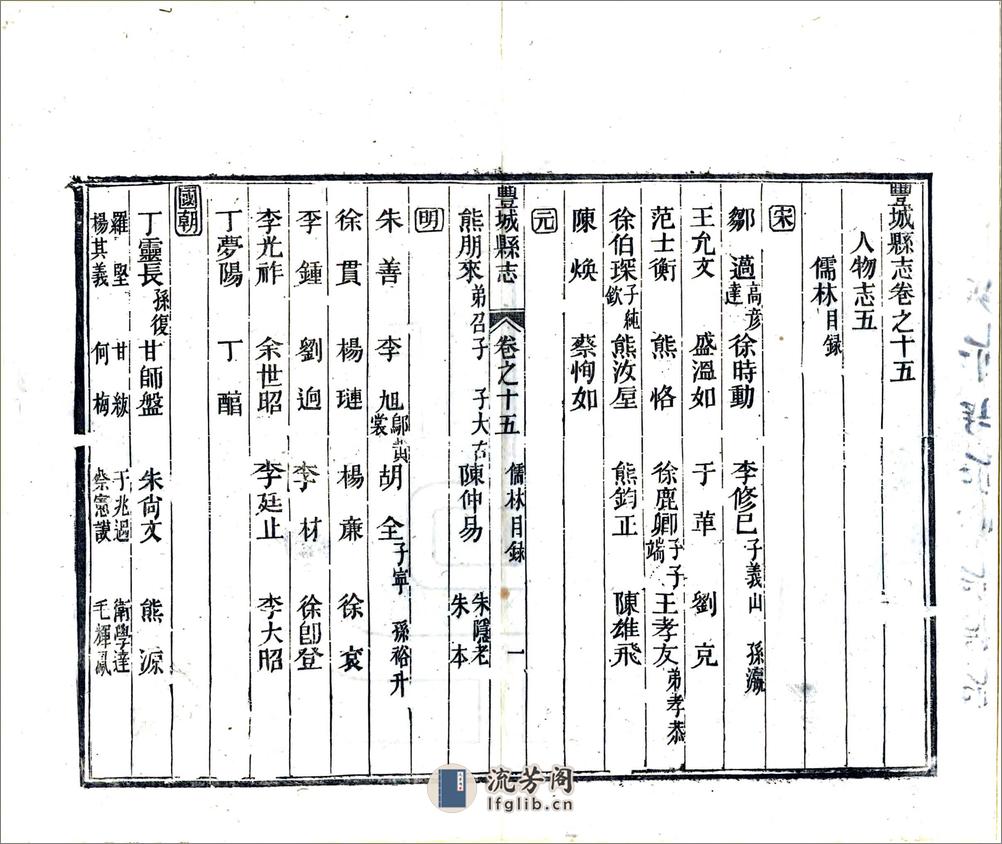 豐城縣志卷之十五
人物志五
儒林目録
宋
鄒遹 高彥達 徐時動 李修已 子義山 孫瀛
王允文 盛溫如 于革 劉克
范士衡 熊恪 徐鹿卿 子子端 王孝友 弟孝恭
徐伯琛 子純欽 熊汝 熊鈞正 陳雄飛
陳煥 蔡恂如
元
豐城縣志 卷之十五 儒林目録 一
熊朋來 弟召子 子大古 陳仲易 朱隱老 朱本
明
朱善 李旭 胡全 子寧 孫裕升
徐貫 楊璉 楊廉 徐袞
李鍾 劉逈 李材 徐卽登
李光祚 余世昭 李廷止 李大昭
丁夢陽 丁
國朝
丁靈長 孫復 甘師盤 朱尙文 熊源
羅堅 甘紱 于兆遇 衛學達
楊其義 何梅 毛輝鳳